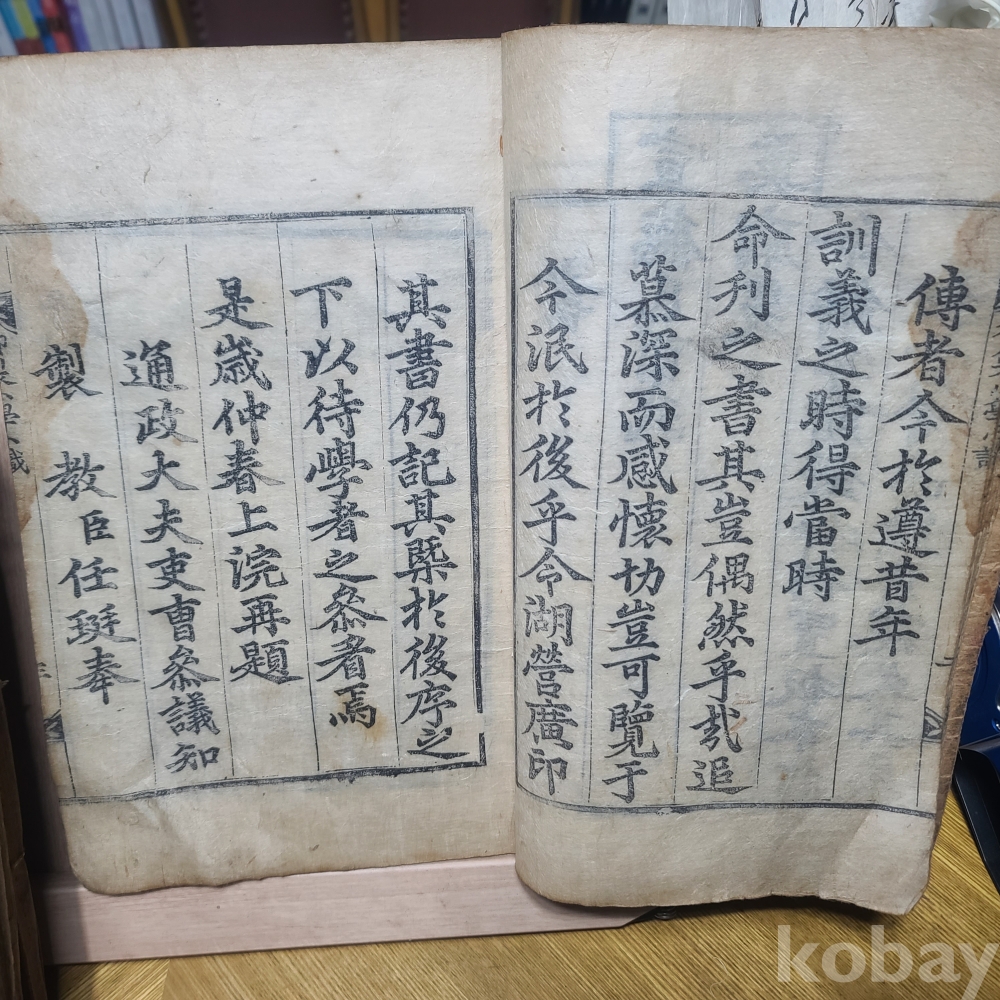 傳者今於遵昔年
訓義之時得當時
命刋之書其豈偶然乎哉追
慕深而感懷切豈可覽于
今泯於後乎令湖營廣印
其書仍記其槩於後序之
下以待學者之叅看焉
是歲仲春上浣再題
通政大夫吏曹叅議知
製 教臣任珽奉
kobay